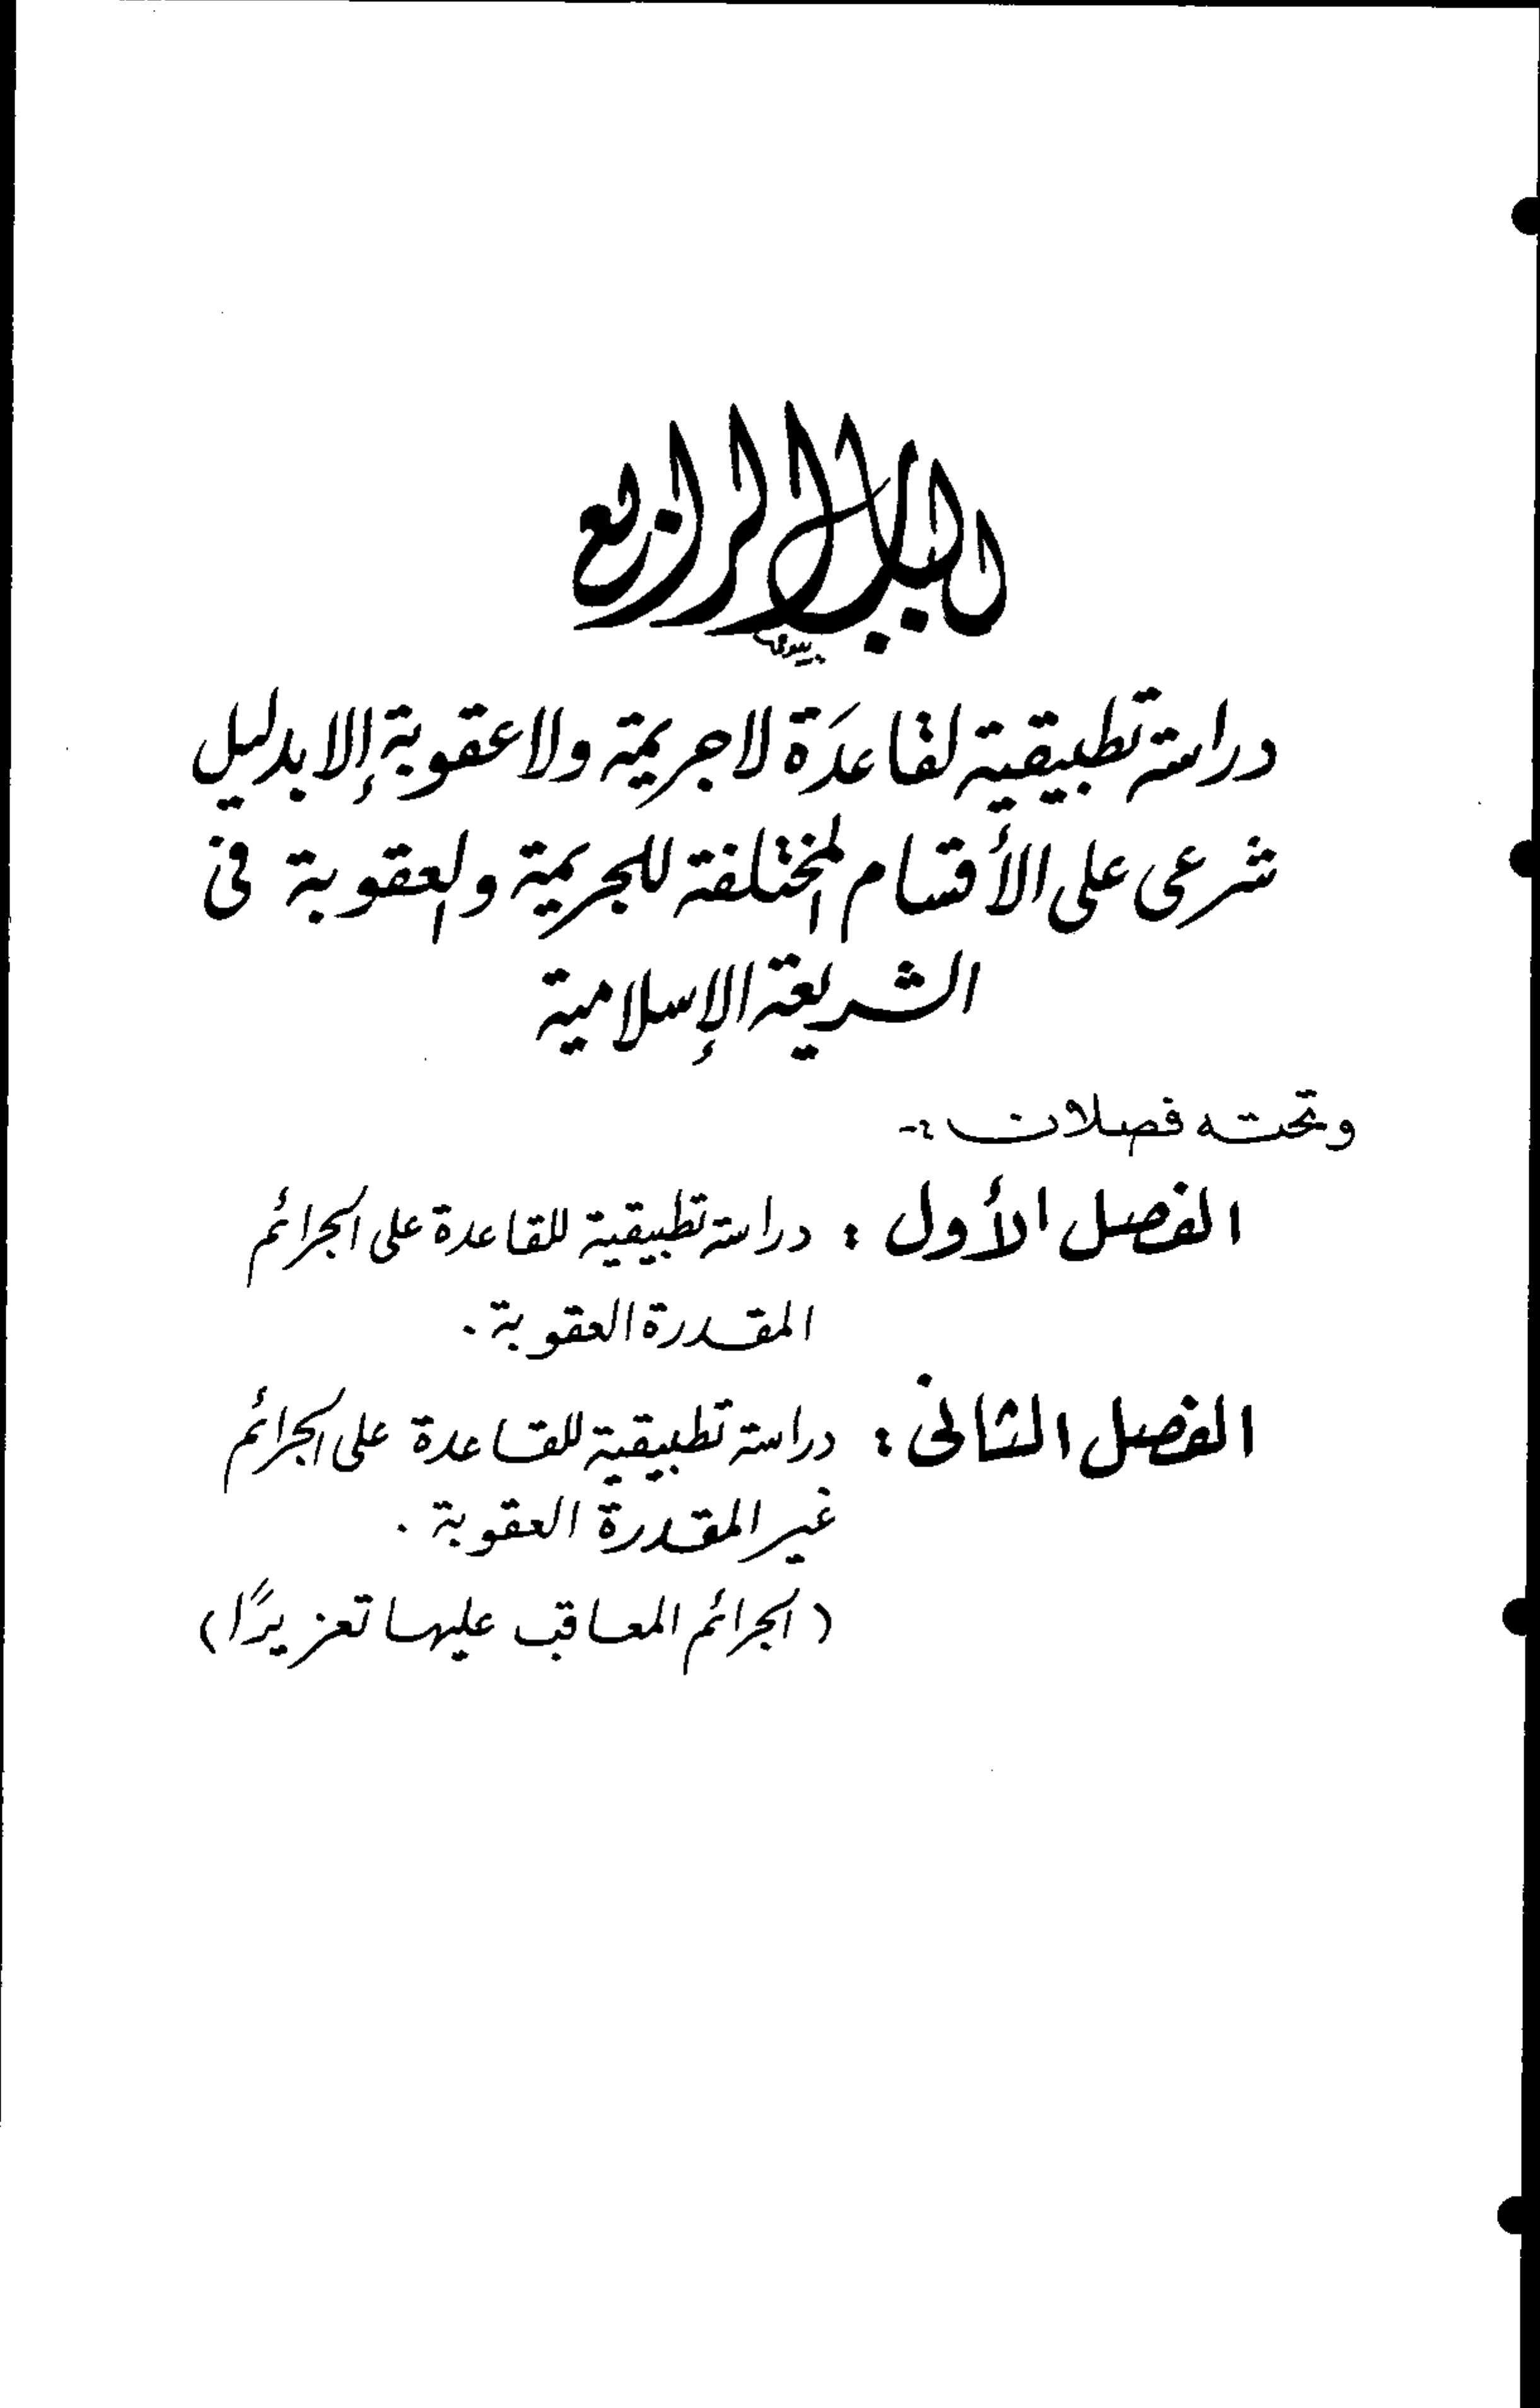 الباب الرابع
دراسة تطبيقية لقاعدَة لاجريمة ولاعقوبة إلا بدليل
شرعى على الأقسام المختلفة للجريمة والعقوبة فى
الشريعة الإسلامية
وتحته فصلان :-
الفصل الأول : دراسة تطبيقية للقاعدة على الجرائم
المقدرة العقوبة .
الفصل الثانى : دراسة تطبيقية للقاعدة على الجرائم
غير المقدرة العقوبة .
(الجرائم المعاقب عليها تعزيرًا)